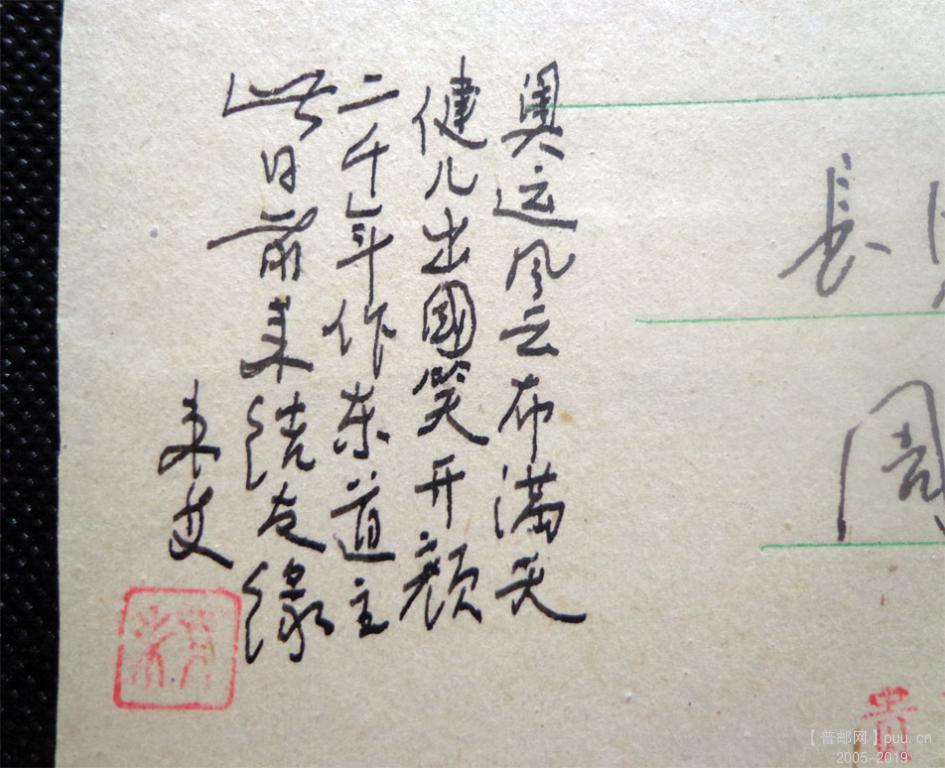 奥运风云布满天
健儿出國笑开颜
二千年作东道主
此日前来结友缘
長
周
貴
【普邮网】puu.cn
2005--2019